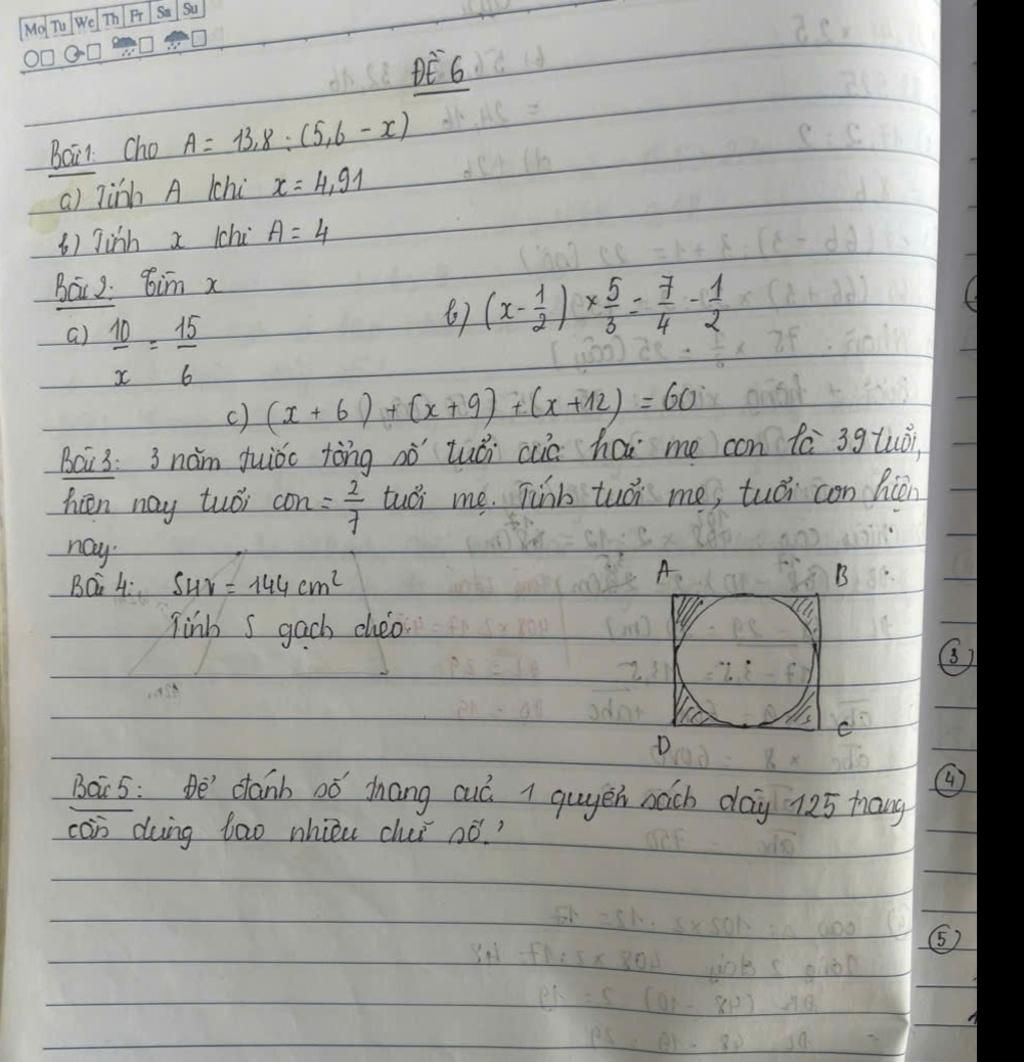 Mo Tu We Th Fr Sa Su
ĐỀ 6
Bài 1: Cho A = 13,8 : (5,6 - x)
a) Tính A khi x = 4,91
b) Tính x khi A = 4
Bài 2: Tìm x
a) 10/x = 15/6 b) (x - 1/2) × 5/3 = 7/4 - 1/2
c) (x + 6) + (x + 9) + (x + 12) = 60
Bài 3: 3 năm trước tổng số tuổi của hai mẹ con là 39 tuổi,
hiện nay tuổi con = 2/7 tuổi mẹ. Tính tuổi mẹ, tuổi con hiện
nay.
Bài 4: SHV = 144 cm²
Tính S gạch chéo.
A B
D C
Bài 5: Để đánh số trang của 1 quyển sách dày 125 trang
cần dùng bao nhiêu chữ số?
3
4
5